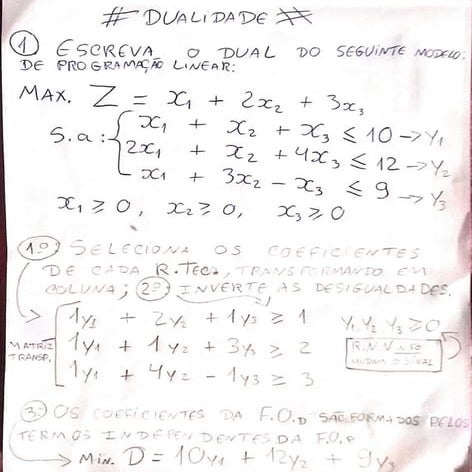 # DUALIDADE #
① ESCREVA O DUAL DO SEGUINTE MODELO
DE PROGRAMAÇÃO LINEAR:
MAX. Z = x₁ + 2x₂ + 3x₃
S.a: { x₁ + x₂ + x₃ ≤ 10 → Y₁
2x₁ + x₂ + 4x₃ ≤ 12 → Y₂
x₁ + 3x₂ - x₃ ≤ 9 → Y₃
x₁ ≥ 0, x₂ ≥ 0, x₃ ≥ 0
1º SELECIONA OS COEFICIENTES
DE CADA R.TEC., TRANSFORMANDO EM
COLUNA; 2º INVERTE AS DESIGUALDADES.
1y₁ + 2y₂ + 1y₃ ≥ 1 Y₁ Y₂ Y₃ ≥ 0
MATRIZ TRANSP. { 1y₁ + 1y₂ + 3y₃ ≥ 2 R.N.N NÃO MUDAM O SINAL
1y₁ + 4y₂ - 1y₃ ≥ 3
3º OS COEFICIENTES DA F.O.D SÃO FORMADOS PELOS
TERMOS INDEPENDENTES DA F.O.P
→ MIN. D = 10y₁ + 12y₂ + 9y₃